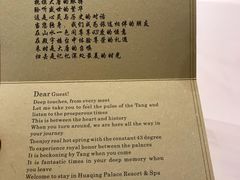 大唐的
聆听盛世的繁华
这是心灵与历史的对话
当您转身，我们成为旅途相伴的朋友
在山水一色间享受心灵的
在殿宇楼台中体验尊荣的礼遇
来时是大唐的召唤
归去是记忆深处最美的时光
Dear Guest!
Deep touches, from every meet
Let me take you to feel the pulse of the Tang and
listen to the prosperous times
This is between the heart and history
When you turn around, we are here all the way in
your journey
Toenjoy real hot spring with the constant 43 degree
To experience royal honor between the palaces
It is beckoning by Tang when you come
It is fantastic times in your deep memory when
you leave
Welcome to stay in Huaqing Palace Resort & Spa